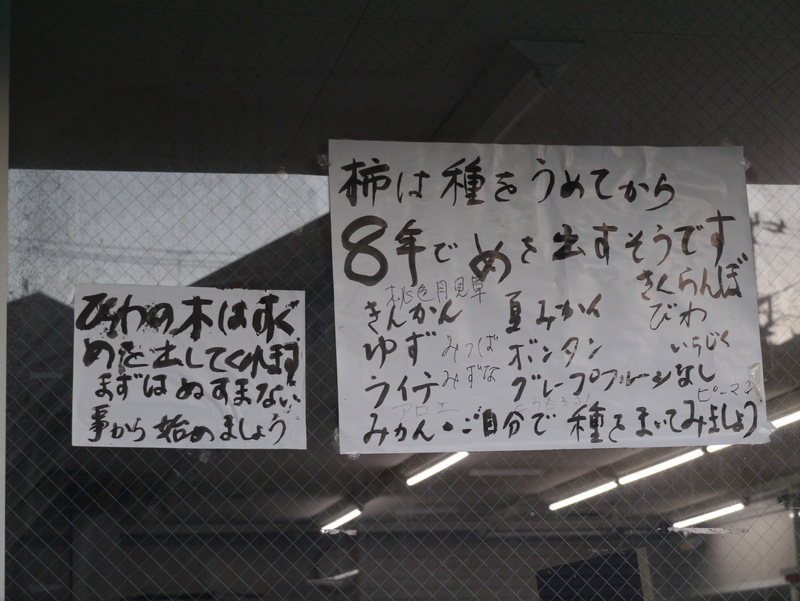 柿は種をうめてから
8年でめを出すそうです
桃色月見草
さくらんぼ
きんかん 夏みかん びわ
ゆず みつば ボンタン いちじく
ライチ みずな グレープフルーツ なし
ピーマン
アロエ
みかん・ご自分で種をまいてみましょう
びわの木はすぐ
めを出してくれます
まずはぬすまない
事から始めましょう